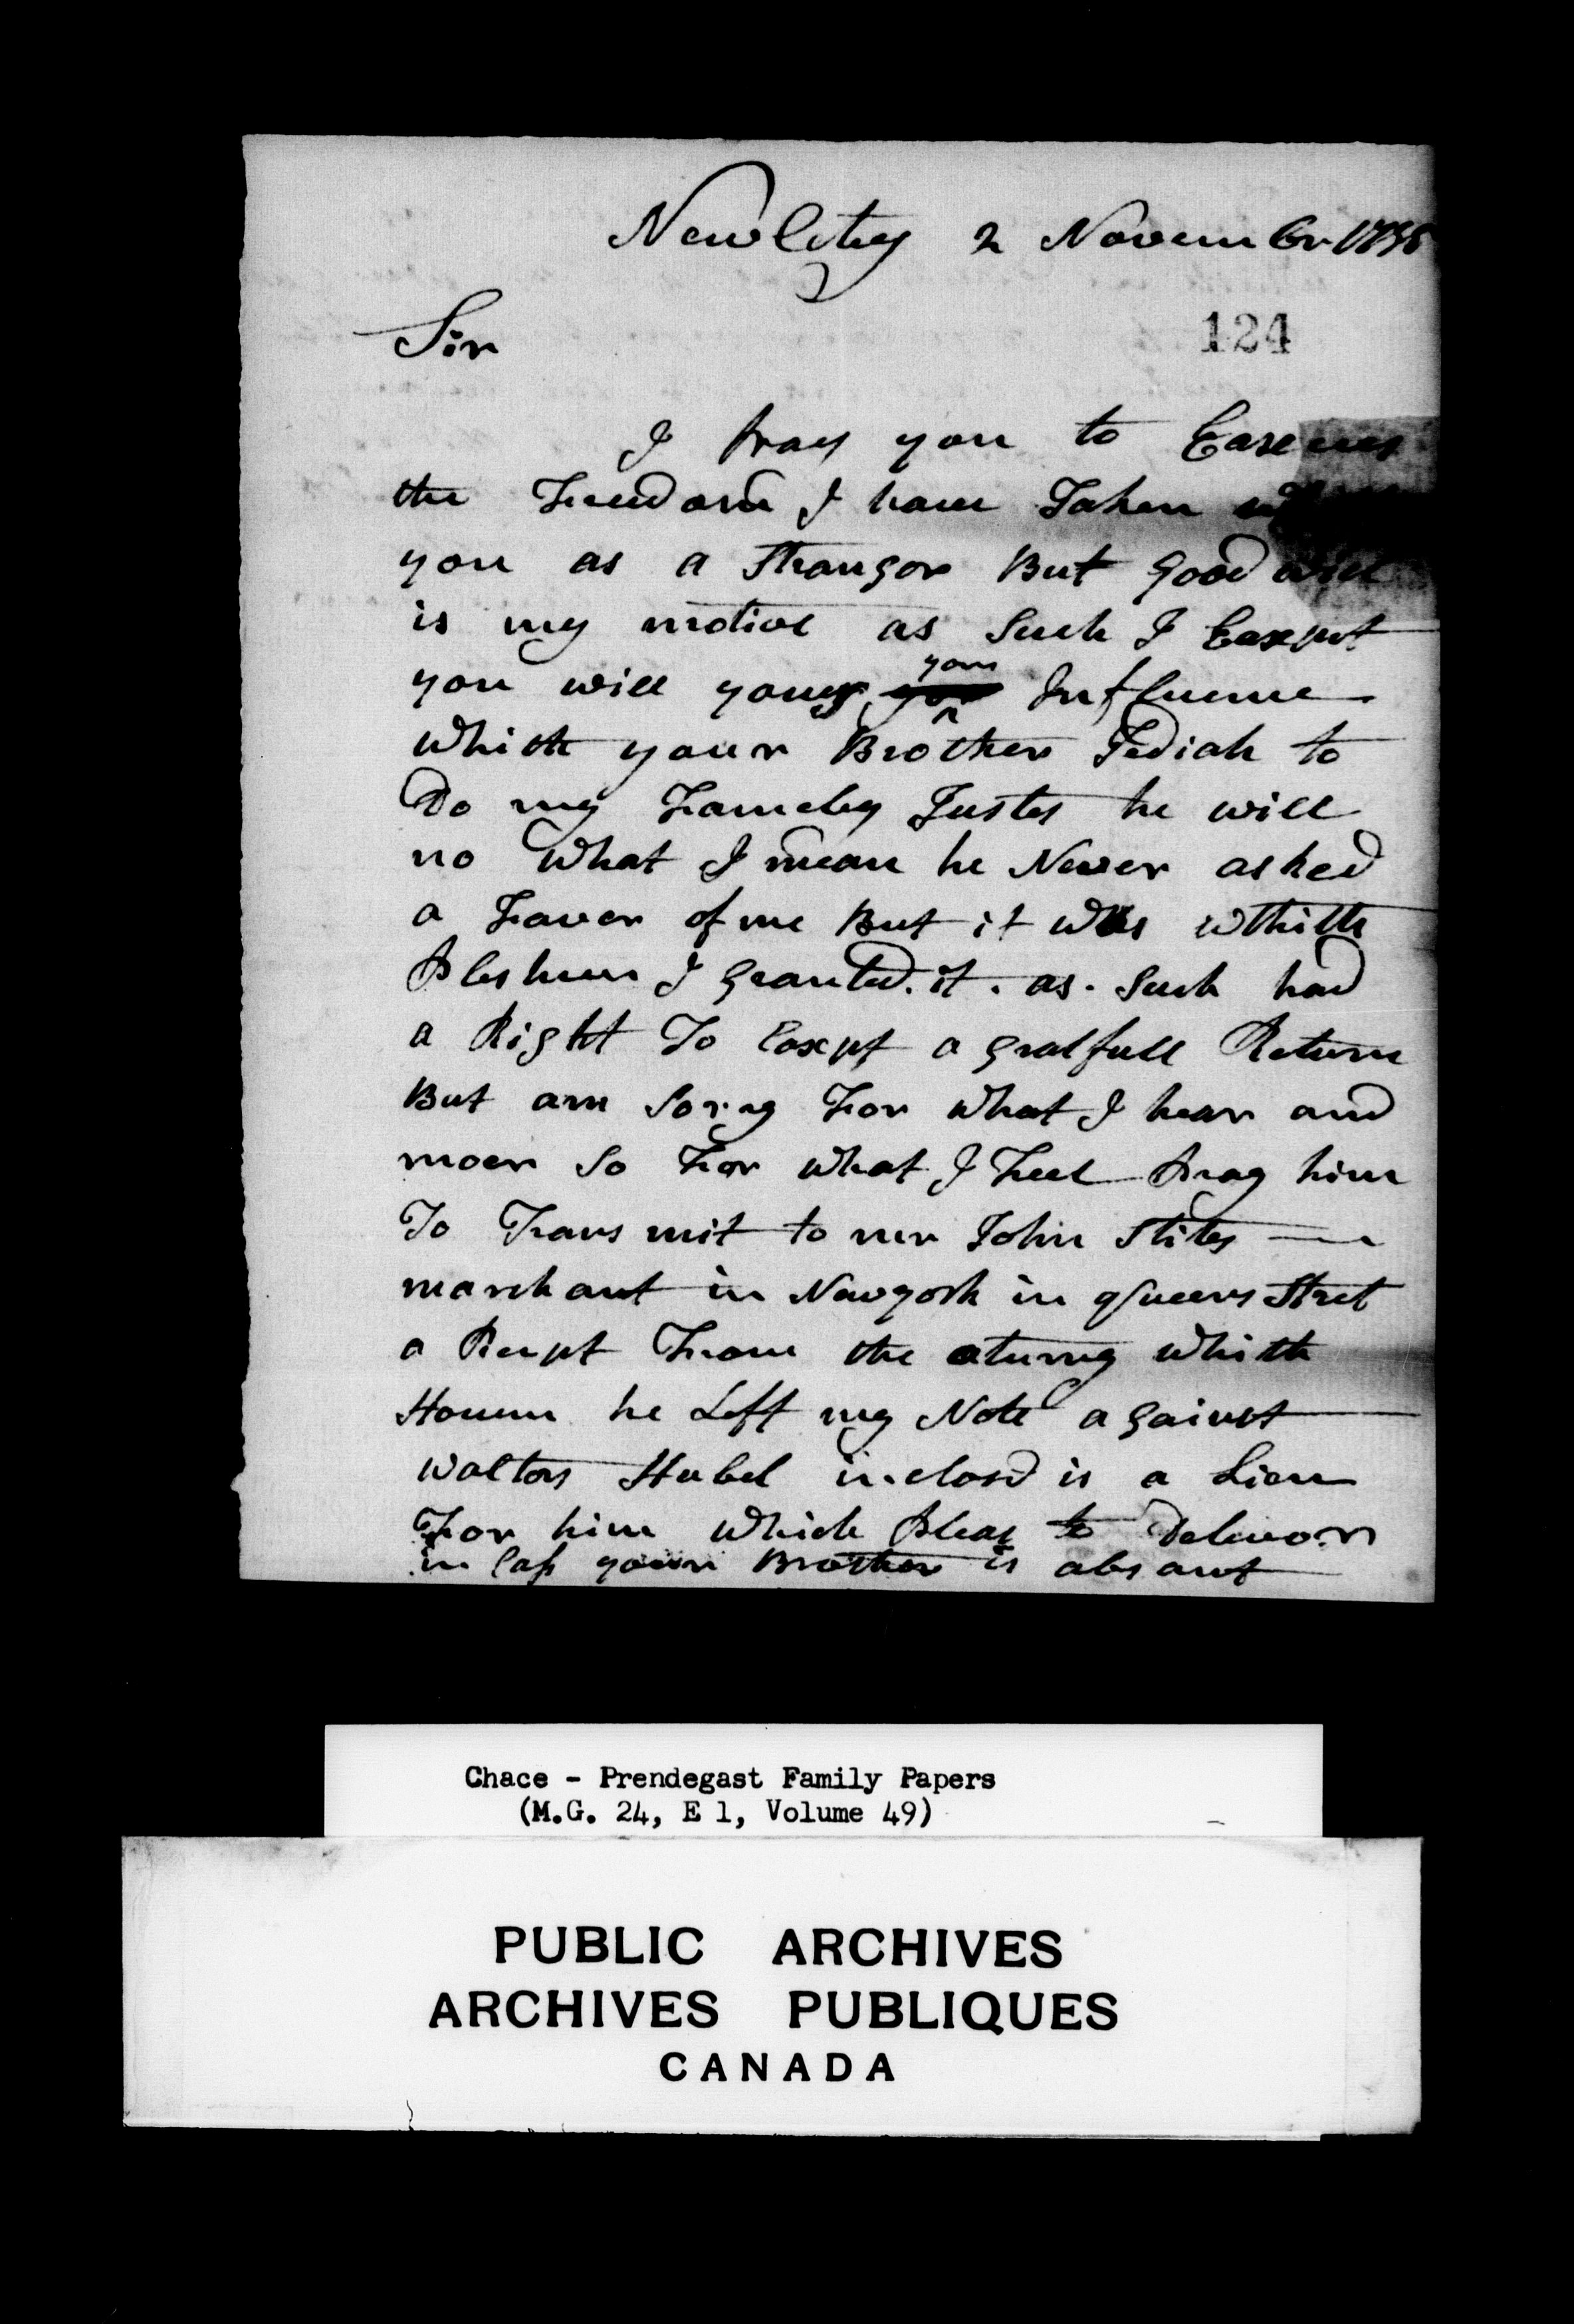 New City 2 November
124
Sir
I pray you to
the Freedom I have Taken
you as a Strangor But Good will
is my motive as Such I Eaxpet
you will your your Influence
Whith your Brother Jediah to
Do my Fameley Justes he will
no What I mean he Never asked
a Faver of me But it was Whith
Pleshuer I Granted. it. as. Such had
a Right To Eaxpt a gratfull Return
But am Sorry For What I hear and
moer So For What I Feel Pray him
To Trans mit to mr John Stites
marchant in Newyork in Queens Stret
a Recpt From the aturny Whith
Houm he Left my Note against
Walton Hubel inclosd is a Lien
For him Which Pleas to Delivor
in Cass your Brother is absant
Chace - Prendegast Family Papers
(M.G. 24, E 1, Volume 49)
PUBLIC ARCHIVES
ARCHIVES PUBLIQUES
CANADA